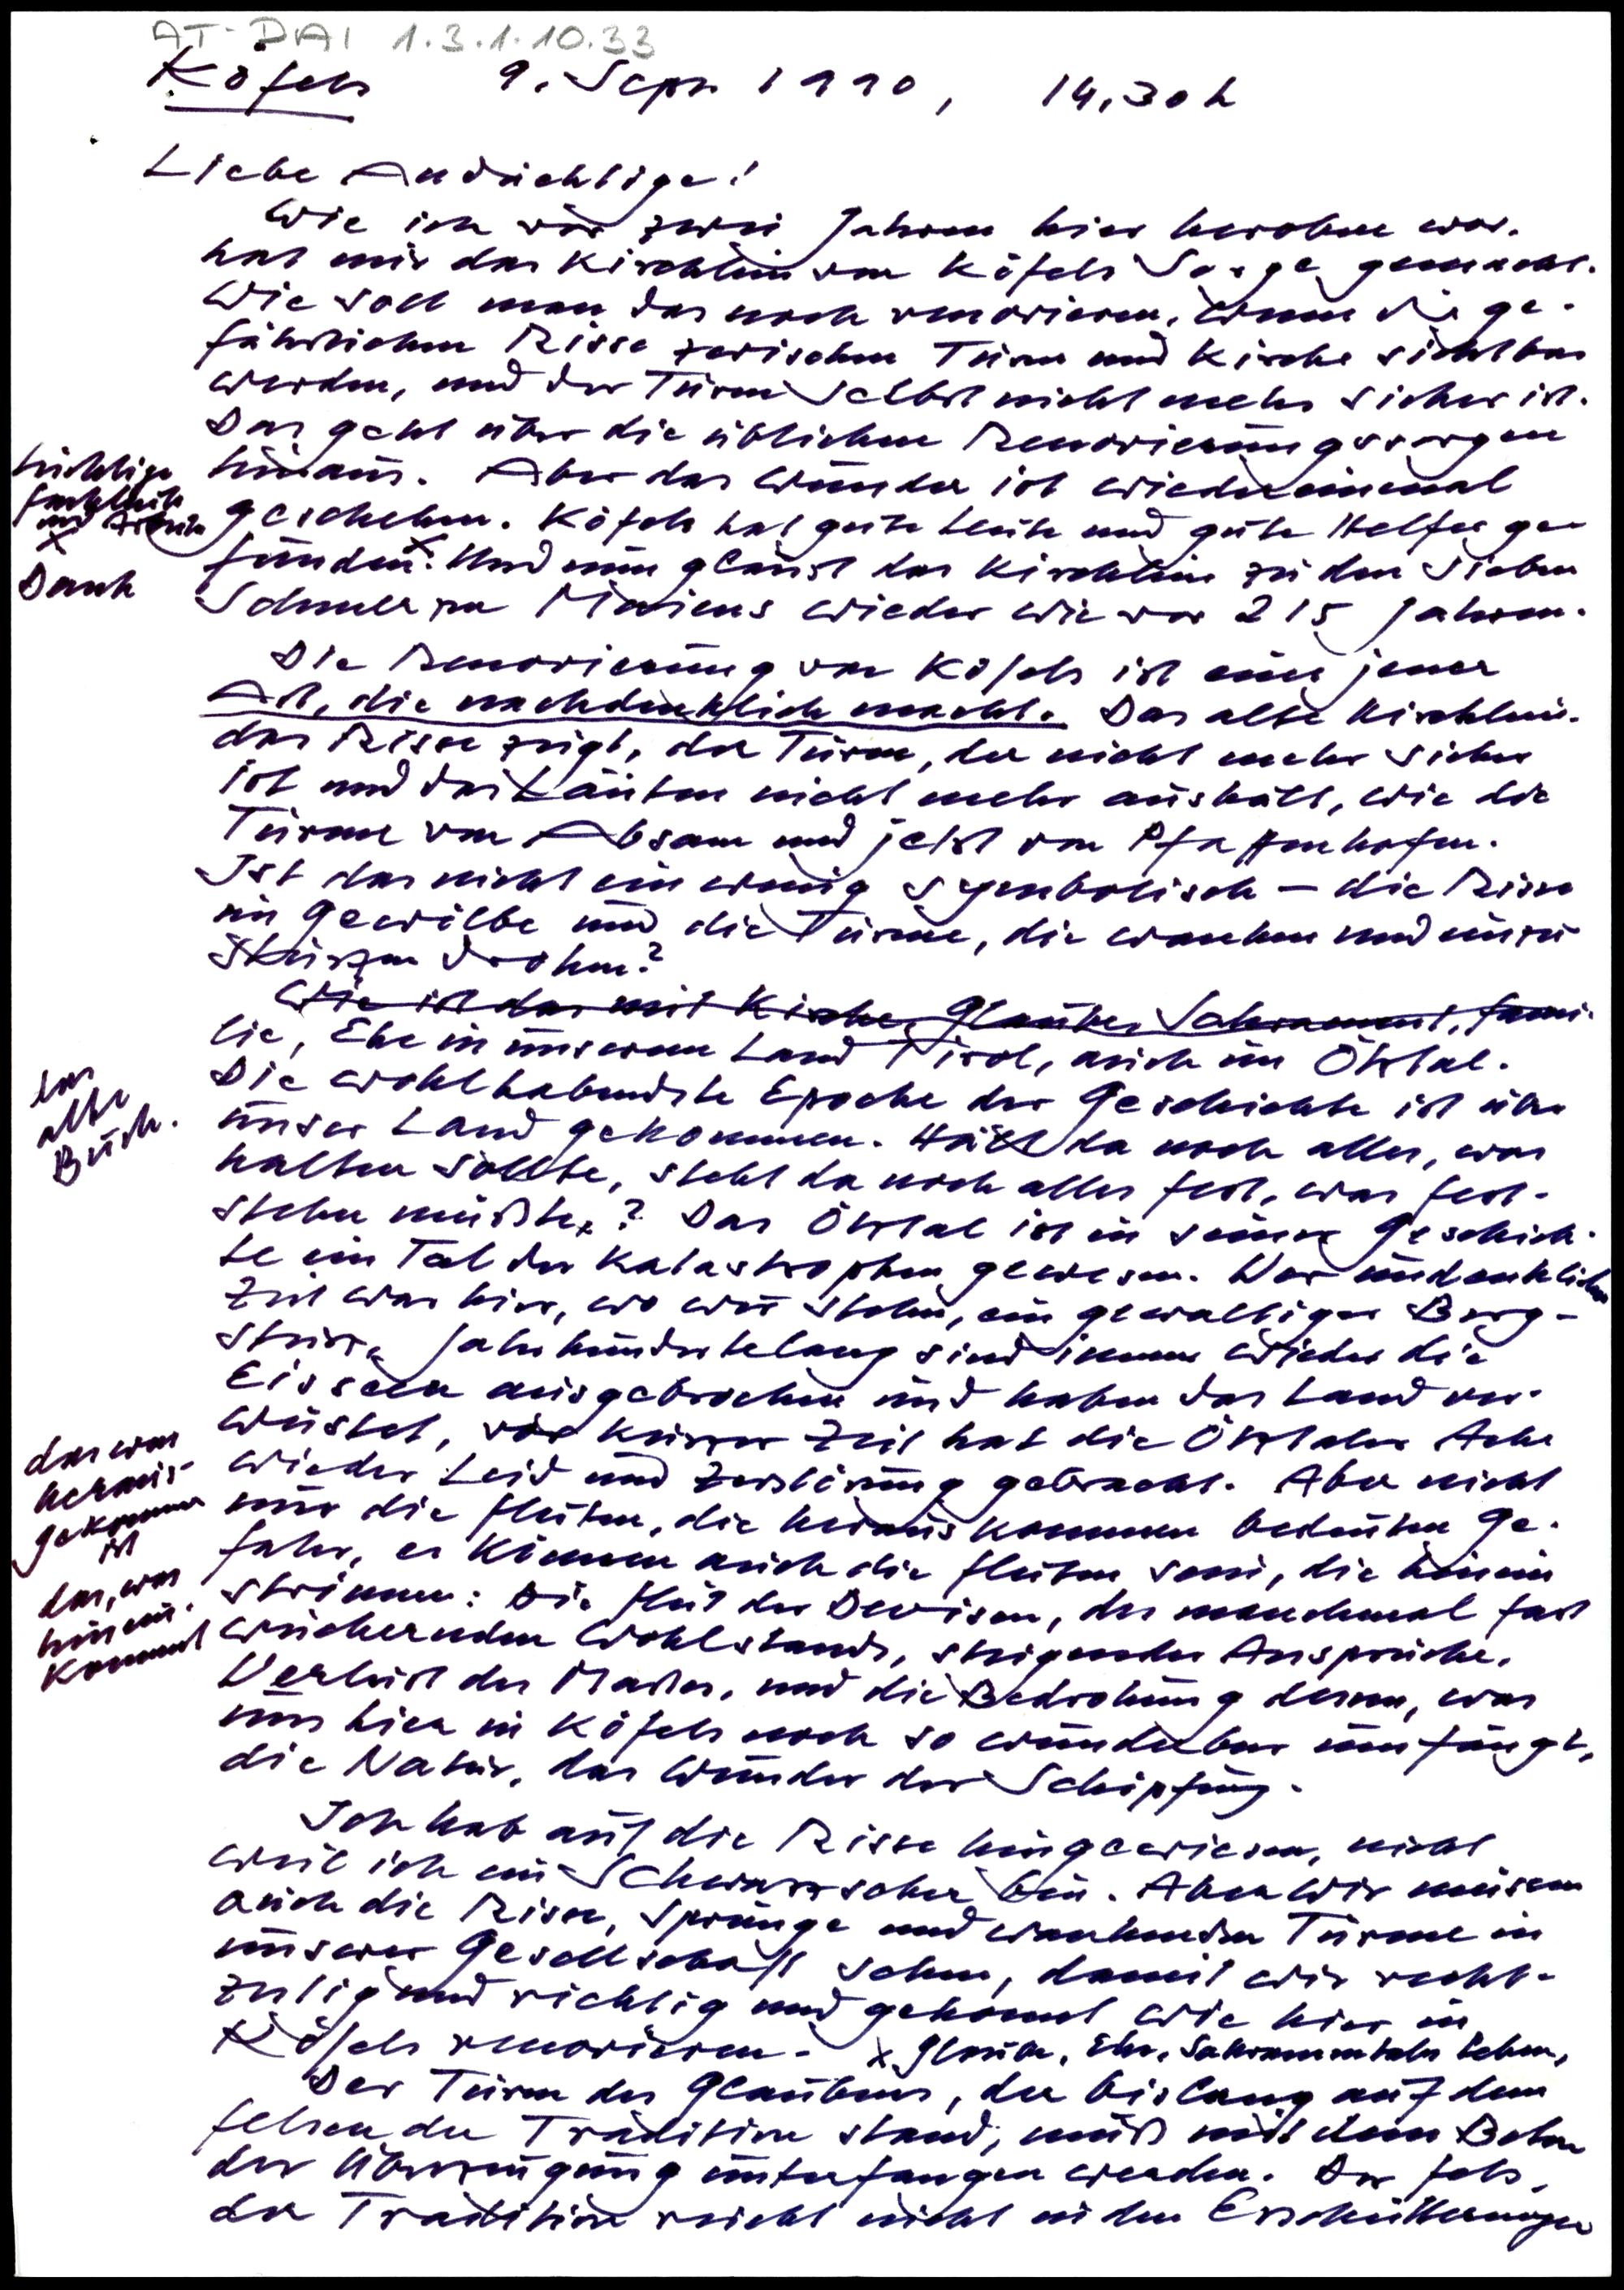 AT-DAI 1.3.1.10.33
Köfels 9. Sept. 1990, 14,30 h
Liebe Andächtige!
Wie ich vor zwei Jahren hier heroben war,
hat mir das Kirchlein von Köfels Sorge gemacht.
Wie soll man das noch renovieren, wenn die ge-
fährlichen Risse zwischen Turm und Kirche sichtbar
werden, und der Turm selbst nicht mehr sicher ist.
Das geht über die üblichen Renovierungssorgen
hinaus. Aber das Wunder ist wieder einmal
geschehen. Köfels hat gute Leute und gute Helfer ge-
funden x. Und nun glänzt das Kirchlein zu den Sieben
Schmerzen Mariens wieder wie vor 215 Jahren.
tüchtige
Fachleute
und Arbeiter
x
Dank
Die Renovierung von Köfels ist eine jener
Art, die nachdenklich macht. Das alte Kirchlein,
das Risse zeigt, der Turm, der nicht mehr sicher
ist und das Läuten nicht mehr aushält, wie die
Türme von Absam und jetzt von Pfaffenhofen.
Ist das nicht ein wenig symbolisch – die Risse
im Gewölbe und die Türme, die wanken und einzu
stürzen drohen?
Wie ist das mit Kirche, Glauben, Sakrament, Fami-
lie, Ehe in unserem Land Tirol, auch im Ötztal.
Die wohlhabendste Epoche der Geschichte ist über
unser Land gekommen. Hält da noch alles, was
halten sollte, steht da noch alles fest, was fest-
stehen müßte x? Das Ötztal ist in seiner Geschich-
te ein Tal der Katastrophen gewesen. Vor undenklicher
Zeit war hier, wo wir stehen, ein gewaltiger Berg-
sturz, Jahrhundertelang sind immer wieder die
Eisseen ausgebrochen und haben das Land ver-
wüstet, vor kurzer Zeit hat die Ötztaler Ache
wieder Leid und Zerstörung gebracht. Aber nicht
nur die Fluten, die herauskommen bedeuten Ge-
fahr, es können auch die Fluten sein, die hinein
strömen: Die Flut der Devisen, des manchmal fast
wuchernden Wohlstands, steigender Ansprüche,
Verlust des Maßes, und die Bedrohung dessen, was
uns hier in Köfels noch so wunderbar umfängt,
die Natur, das Wunder der Schöpfung.
das
alte
Buch.
das was
heraus-
gekommen
ist
das, was
hinein-
kommt
Ich hab auf die Risse hingewiesen, nicht
weil ich ein Schwarzseher bin. Aber wir müssen
auch die Risse, Sprünge und wankenden Türme in
unserer Gesellschaft sehen, damit wir recht-
zeitig und richtig und gekonnt wie hier in
Köfels renovieren. x Glaube, Ehe, Sakramentales Leben,
Der Turm des Glaubens, der bislang auf dem
Felsen der Tradition stand, muß mit dem Beton
der Überzeugung unterfangen werden. Der Fels
der Tradition reicht nicht in den Erschütterungen